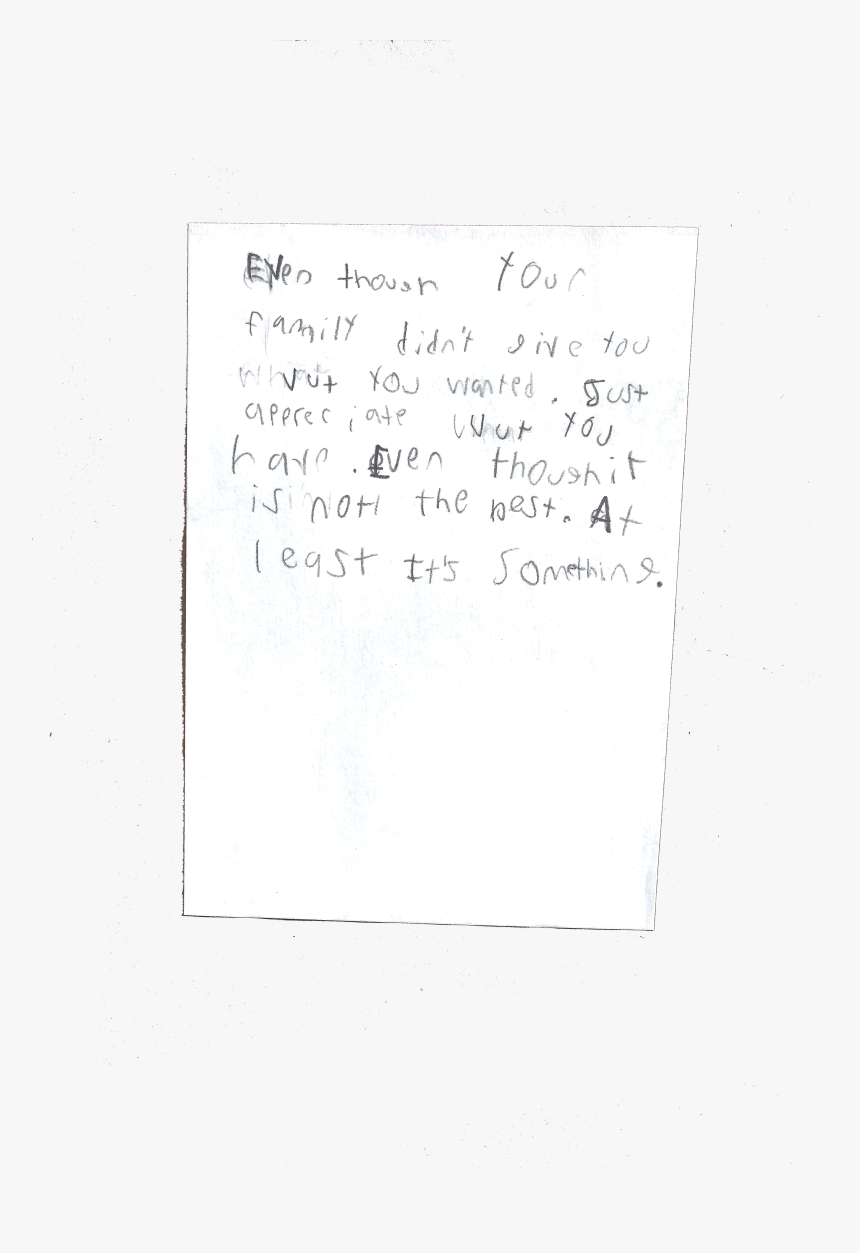 Even thougn Your
family didn't give You
wut You wanted. Just
appreciate wut You
have. Even thoughit
is not the best. At
least It's Something.